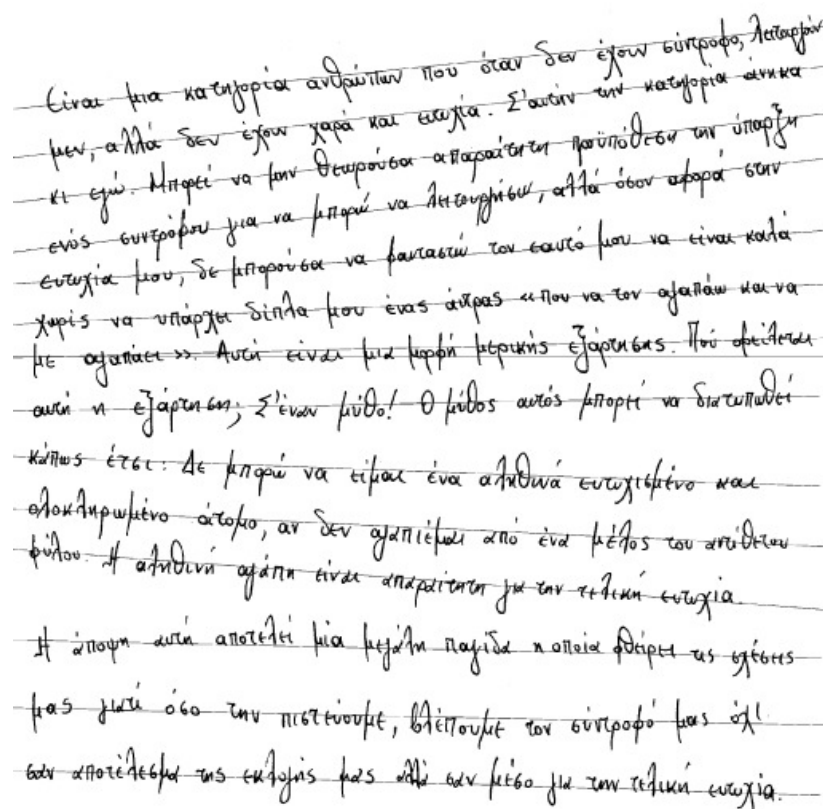 Είναι μια κατηγορία ανθρώπων που όταν δεν έχουν σύντροφο, λειτουργούν
μεν, αλλά δεν έχουν χαρά και ευτυχία. Σ'αυτήν την κατηγορία άνηκα
κι εγώ. Μπορεί να μην θεωρούσα απαραίτητη προϋπόθεση την ύπαρξη
ενός συντρόφου για να μπορώ να λειτουργήσω, αλλά όσον αφορά στην
ευτυχία μου, δε μπορούσα να φανταστώ τον εαυτό μου να είναι καλά
χωρίς να υπάρχει δίπλα μου ένας άντρας «που να τον αγαπάω και να
με αγαπάει». Αυτή είναι μια μορφή μερικής εξάρτησης. Πού οφείλεται
αυτή η εξάρτηση; Σ'έναν μύθο! Ο μύθος αυτός μπορεί να διατυπωθεί
κάπως έτσι: Δε μπορώ να είμαι ένα αληθινά ευτυχισμένο και
ολοκληρωμένο άτομο, αν δεν αγαπιέμαι από ένα μέλος του αντίθετου
φύλου. Η αληθινή αγάπη είναι απαραίτητη για την τελική ευτυχία.
Η άποψη αυτή αποτελεί μία μεγάλη παγίδα η οποία φθείρει τις σχέσεις
μας γιατί όσο την πιστεύουμε, βλέπουμε τον σύντροφό μας όχι
σαν αποτέλεσμα της εκλογής μας αλλά σαν μέσο για την τελική ευτυχία.